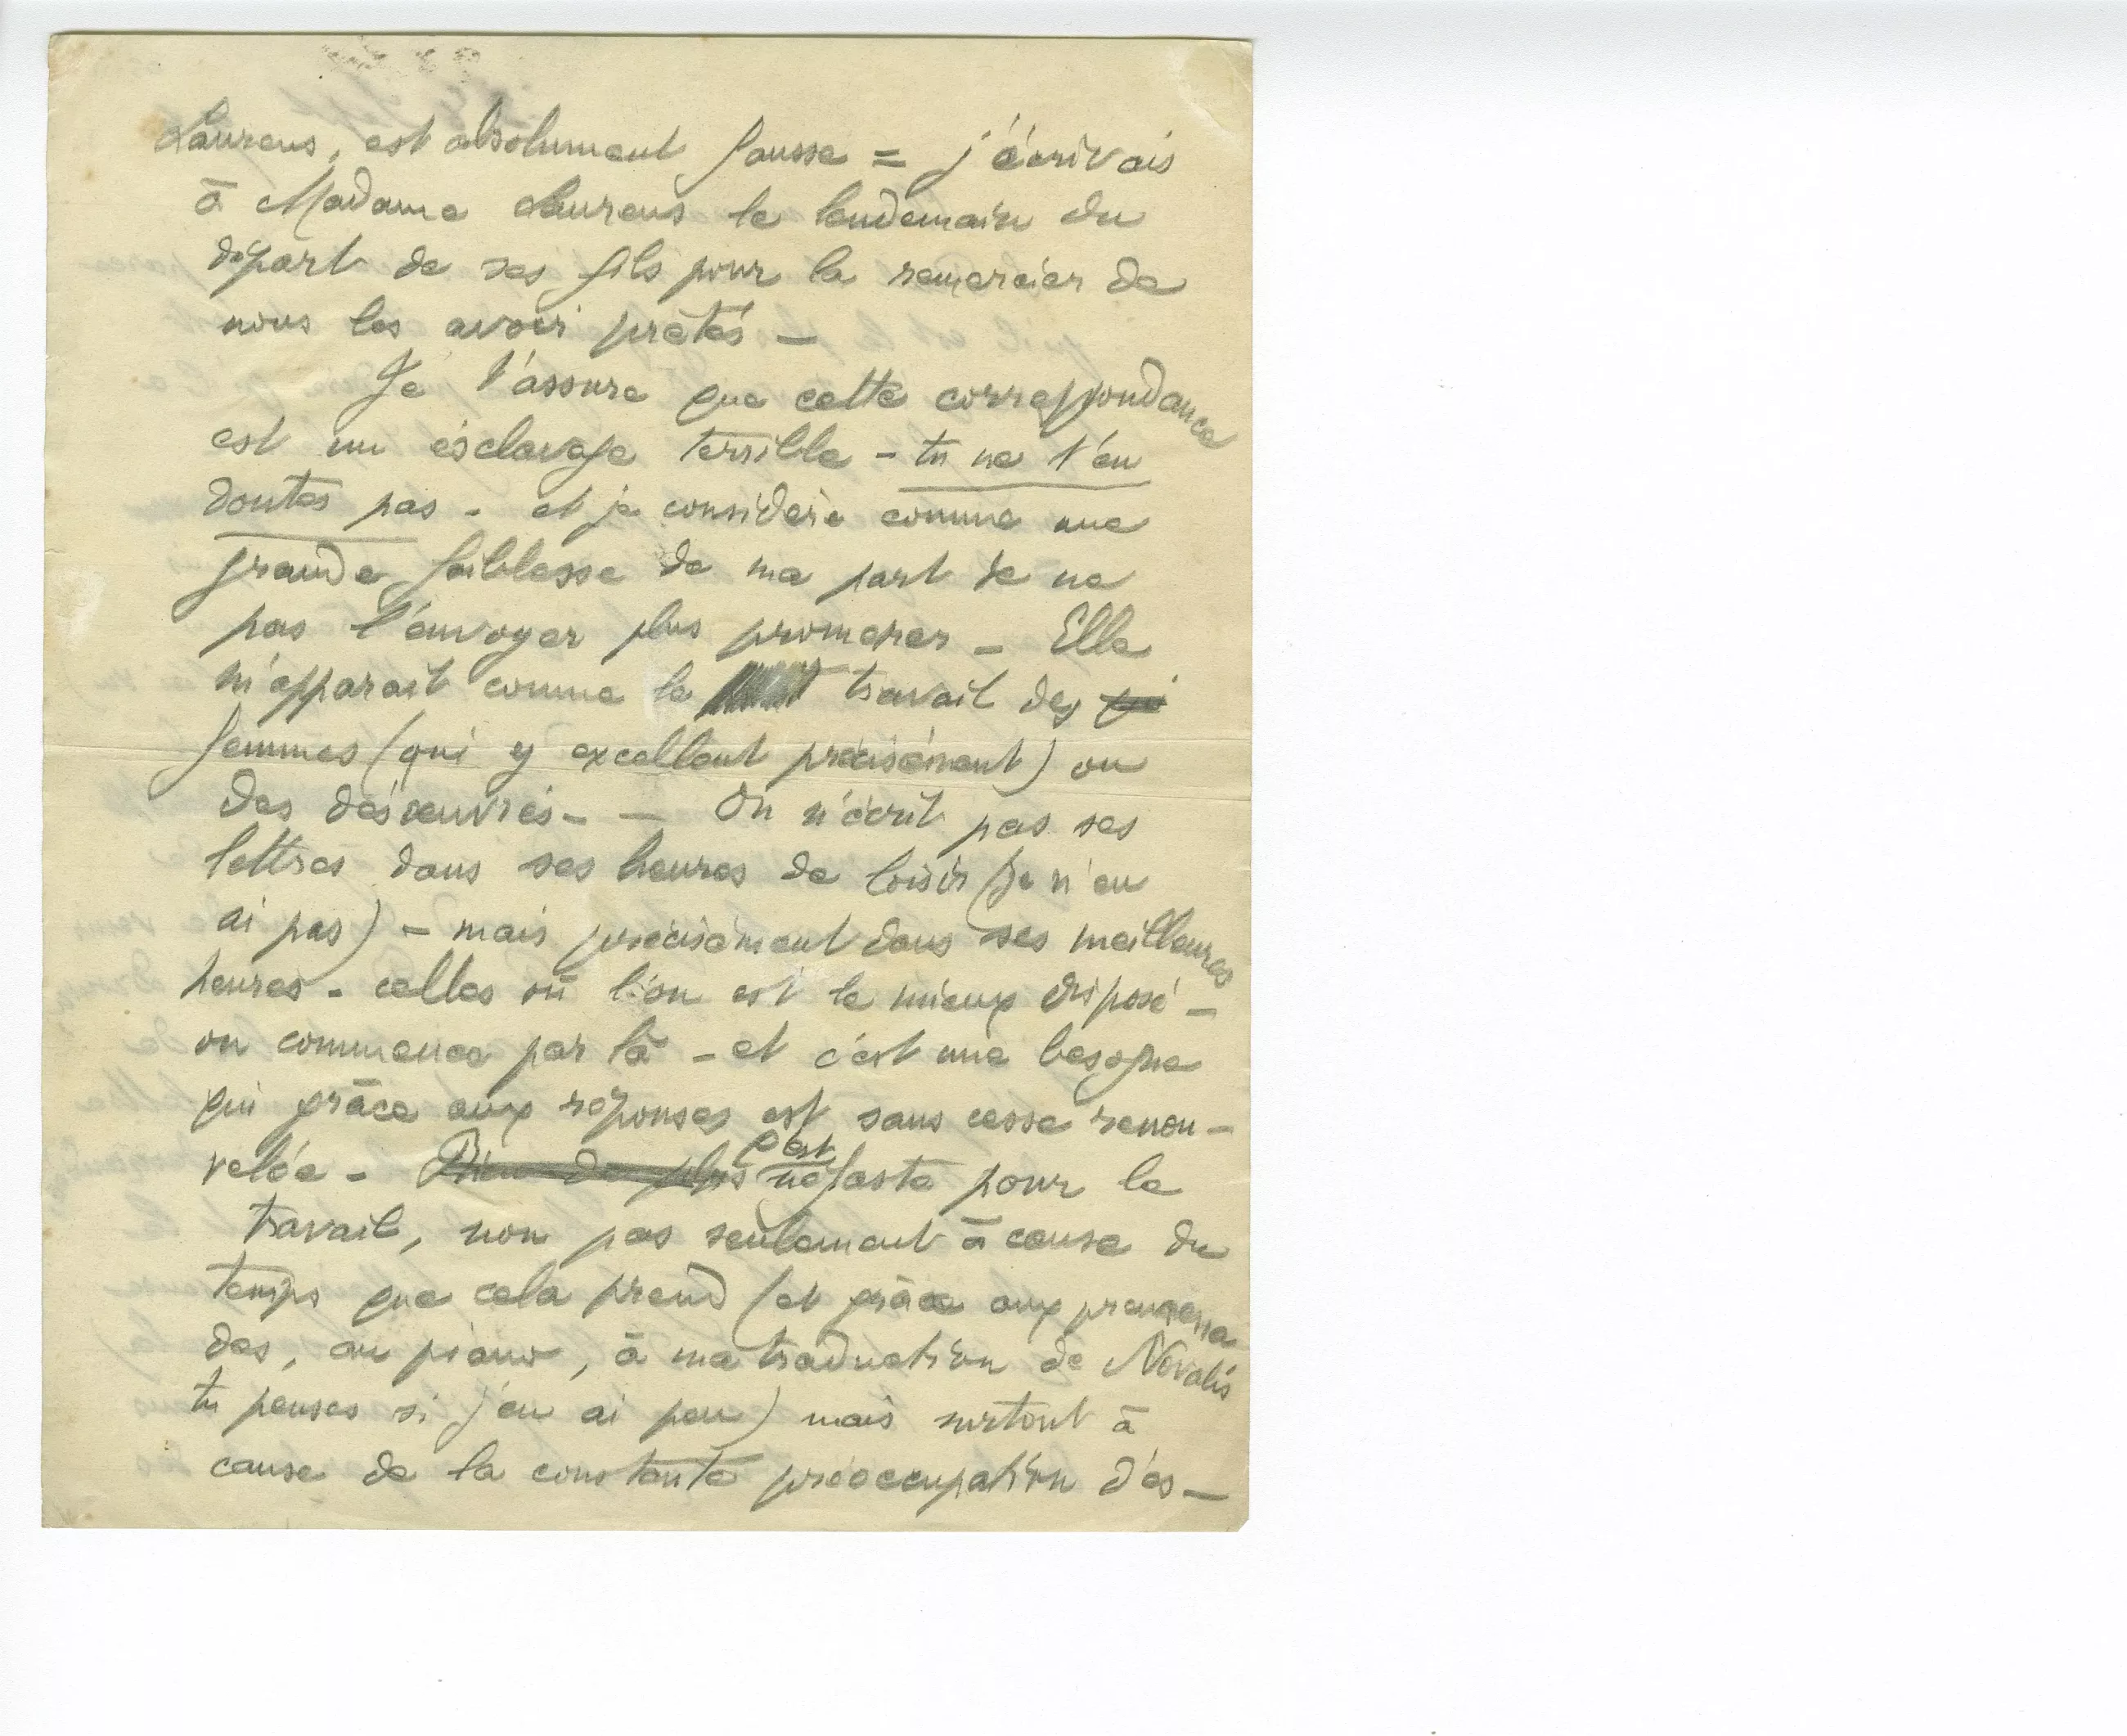 Laurens, est absolument fausse = j'écrivais
à Madame Laurens le lendemain du
départ de ses fils pour la remercier de
nous les avoir prêtés –
Je t'assure que cette correspondance
est un esclavage terrible – tu ne t'en
doutes pas – et je considère comme une
grande faiblesse de ma part de ne
pas l'envoyer plus promener – Elle
m'apparait comme le travail des
femmes (qui y excellent précisément) ou
des désœuvrés – – On n'écrit pas ses
lettres dans ses heures de loisir (je n'en
ai pas) – mais précisément dans ses meilleures
heures – celles où l'on est le mieux disposé –
on commence par là – et c'est une besogne
qui grâce aux réponses est sans cesse renou–
velée – Rien de plus c'est néfaste pour le
travail, non pas seulement à cause du
temps que cela prend (et grâce aux promena
des, au piano, à ma traduction de Novalis
tu penses si j'en ai peu) mais surtout à
cause de la constante préoccupation d'es–